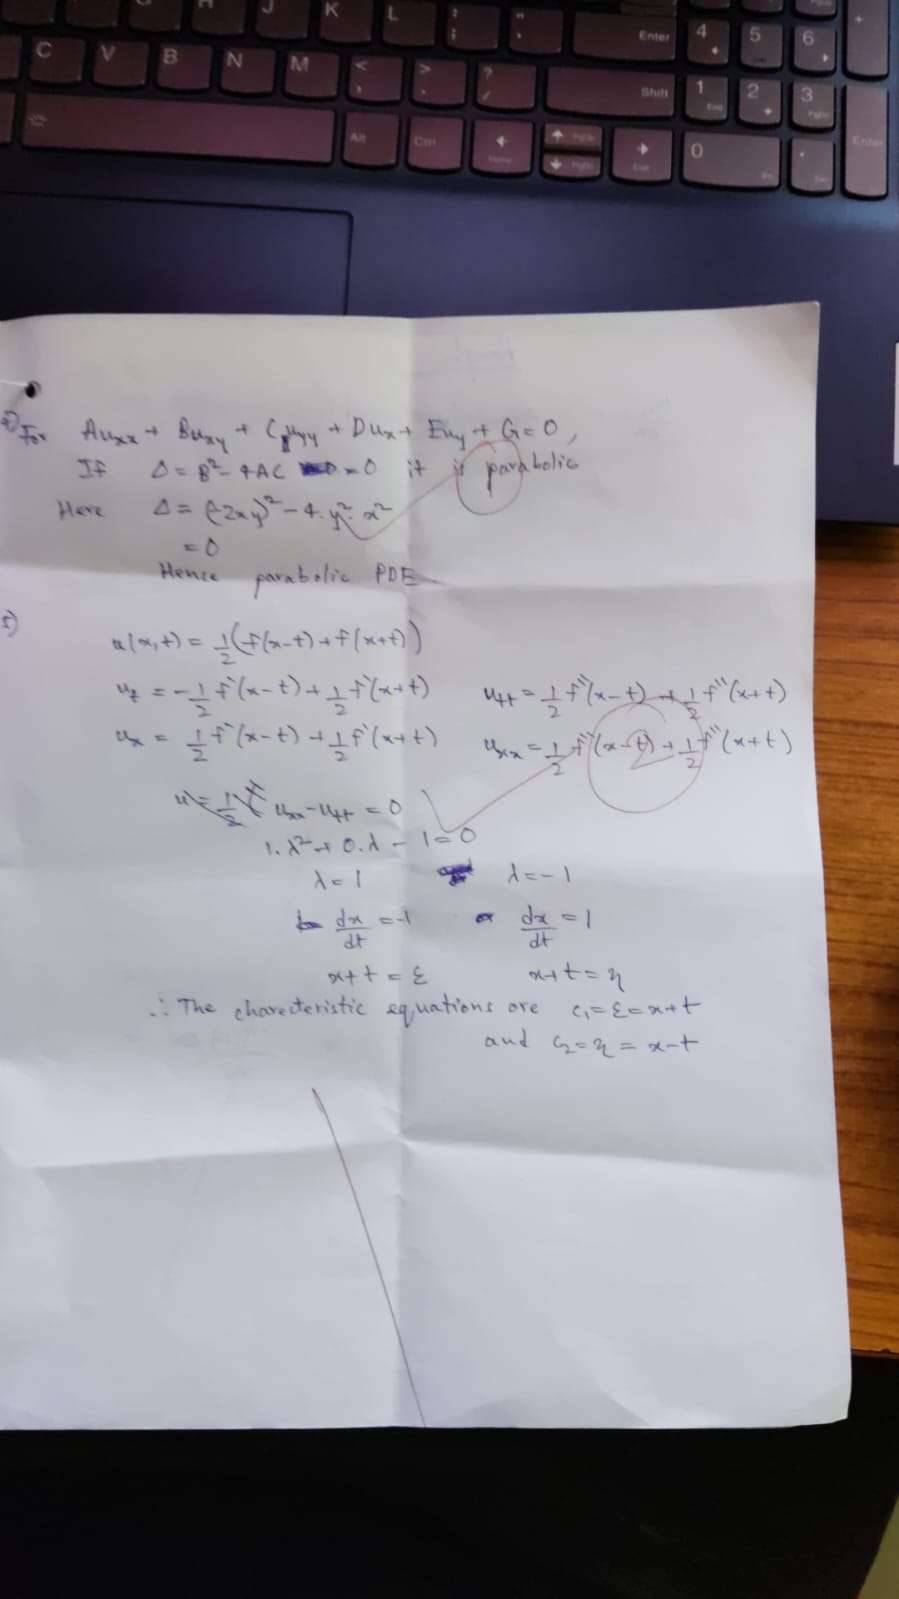 J K L : ; " '
Enter 4 5 6
C V B N M < , > . ? /
Shift 1 End 2 3 PgDn
Alt Ctrl Home PgUp PgDn End 0 Ins . Del Enter
4) For Auxx + Buxy + Cuyy + Dux + Euy + G = 0,
If Δ = B² - 4AC = 0 it is parabolic
Here Δ = (-2xy)² - 4.y².x²
= 0
Hence parabolic PDE
5)
u(x,t) = 1/2 (f(x-t) + f(x+t))
ut = -1/2 f'(x-t) + 1/2 f'(x+t) utt = 1/2 f''(x-t) + 1/2 f''(x+t)
ux = 1/2 f'(x-t) + 1/2 f'(x+t) uxx = 1/2 f''(x-t) + 1/2 f''(x+t)
2
uxx - utt = 0
1.λ² + 0.λ - 1 = 0
λ = 1 λ = -1
dx/dt = -1 dx/dt = 1
x+t = ξ x+t = η
∴ The charecteristic equations are c₁ = ξ = x+t
and c₂ = η = x-t